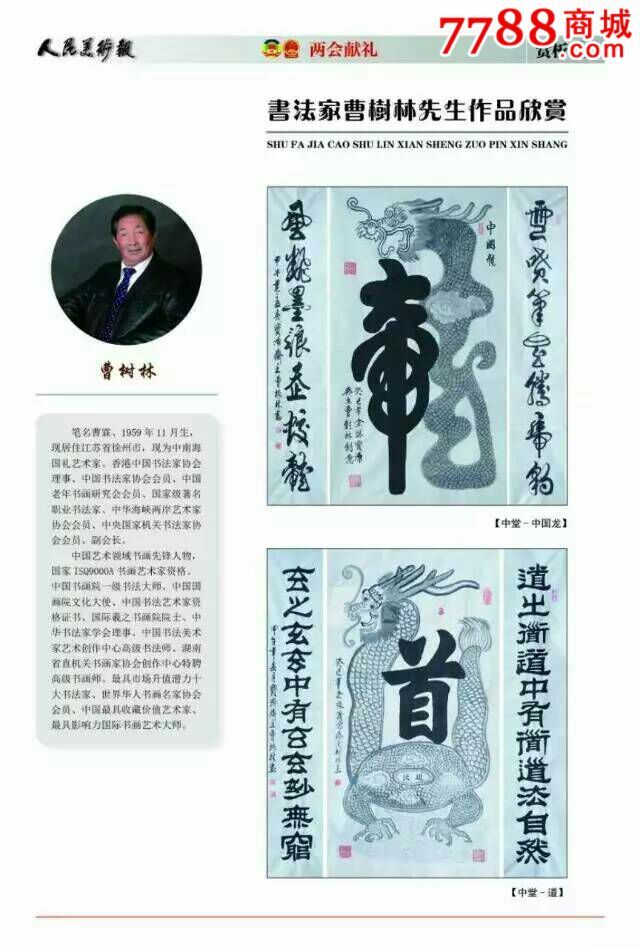 人民美術報
两会献礼
7788商城
.com
書法家曹樹林先生作品欣賞
SHU FA JIA CAO SHU LIN XIAN SHENG ZUO PIN XIN SHANG
曹树林
笔名曹霖、1959年11月生，
现居住江苏省徐州市，现为中南海
国礼艺术家。香港中国书法家协会
理事、中国书法家协会会员、中国
老年书画研究会会员、国家级著名
职业书法家、中华海峡两岸艺术家
协会会员、中央国家机关书法家协
会会员、副会长。
中国艺术领域书画先锋人物，
国家ISQ9000A书画艺术家资格。
中国书画院一级书法大师、中国国
画院文化大使、中国书法艺术家资
格证书、国际羲之书画院院士、中
华书法家学会理事、中国书法美术
家艺术创作中心高级书法师、湖南
省直机关书画家协会创作中心特聘
高级书画师、最具市场升值潜力十
大书法家、世界华人书画名家协会
会员、中国最具收藏价值艺术家、
最具影响力国际书画艺术大师。
中國龍
【中堂－中国龙】
道出衢道中有衢道法自然
首
玄之玄玄中有玄玄妙無窮
【中堂－道】